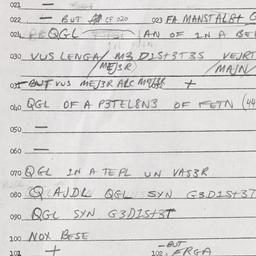 021 —
022 — BUT CF 020 023 FA MANSTALAT
024 QGL IAN OF 2N A BEL
030 VUS LENGA/ M3 D2S+3T3S VEJRT
MEJ3R /MAJN/
035 BUT VUS MEJ3R ARC +
040 QGL OF A P3TEL8N3 OF FETN (44
050 —
060 —
070 QGL 2N A TEPL UN VAS3R
080 Q AJDL QGL SYN G3D2S+3T
090 QGL SYN G3D2S+3T
100 NOX BESE
— BUT
101 + 102 FRGA